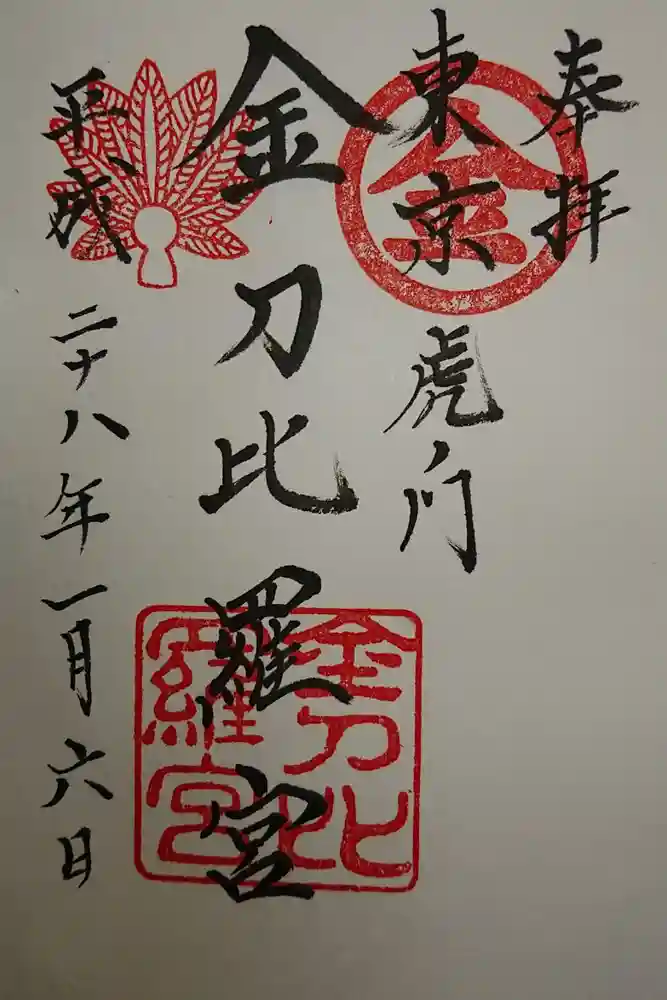 奉拝
東京
虎ノ門
金刀比羅宮
平成二十八年一月六日
金
金刀比羅宮